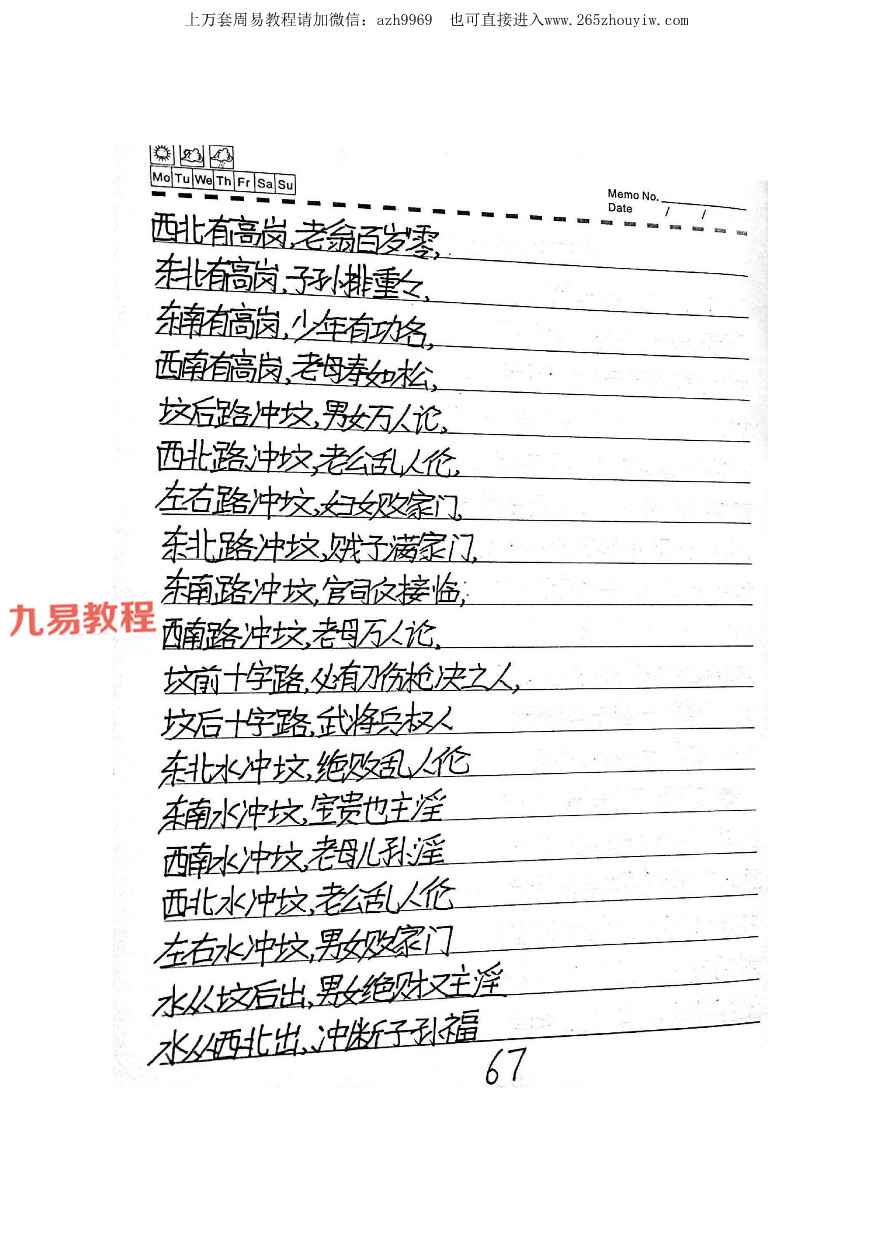 上万套周易教程请加微信：azh9969 也可直接进入www.265zhouyiw.com
Mo Tu We Th Fr Sa Su
Memo No.
Date / /
西北有高岗,老翁百岁零,
东北有高岗,子孙排重々,
东南有高岗,少年有功名,
西南有高岗,老母寿如松,
坟后路冲坟,男女万人论,
西北路冲坟,老公乱人伦,
左右路冲坟,妇女败家门,
东北路冲坟,贼子满家门,
东南路冲坟,官司仅接临,
九易教程
西南路冲坟,老母万人论,
坟前十字路,必有刀伤枪决之人,
坟后十字路,武将兵权人
东北水冲坟,绝败乱人伦
东南水冲坟,宝贵也主淫
西南水冲坟,老母儿孙淫
西北水冲坟,老公乱人伦
左右水冲坟,男女败家门
水从坟后出,男女绝财又主淫
水从西北出、冲断子孙福
67